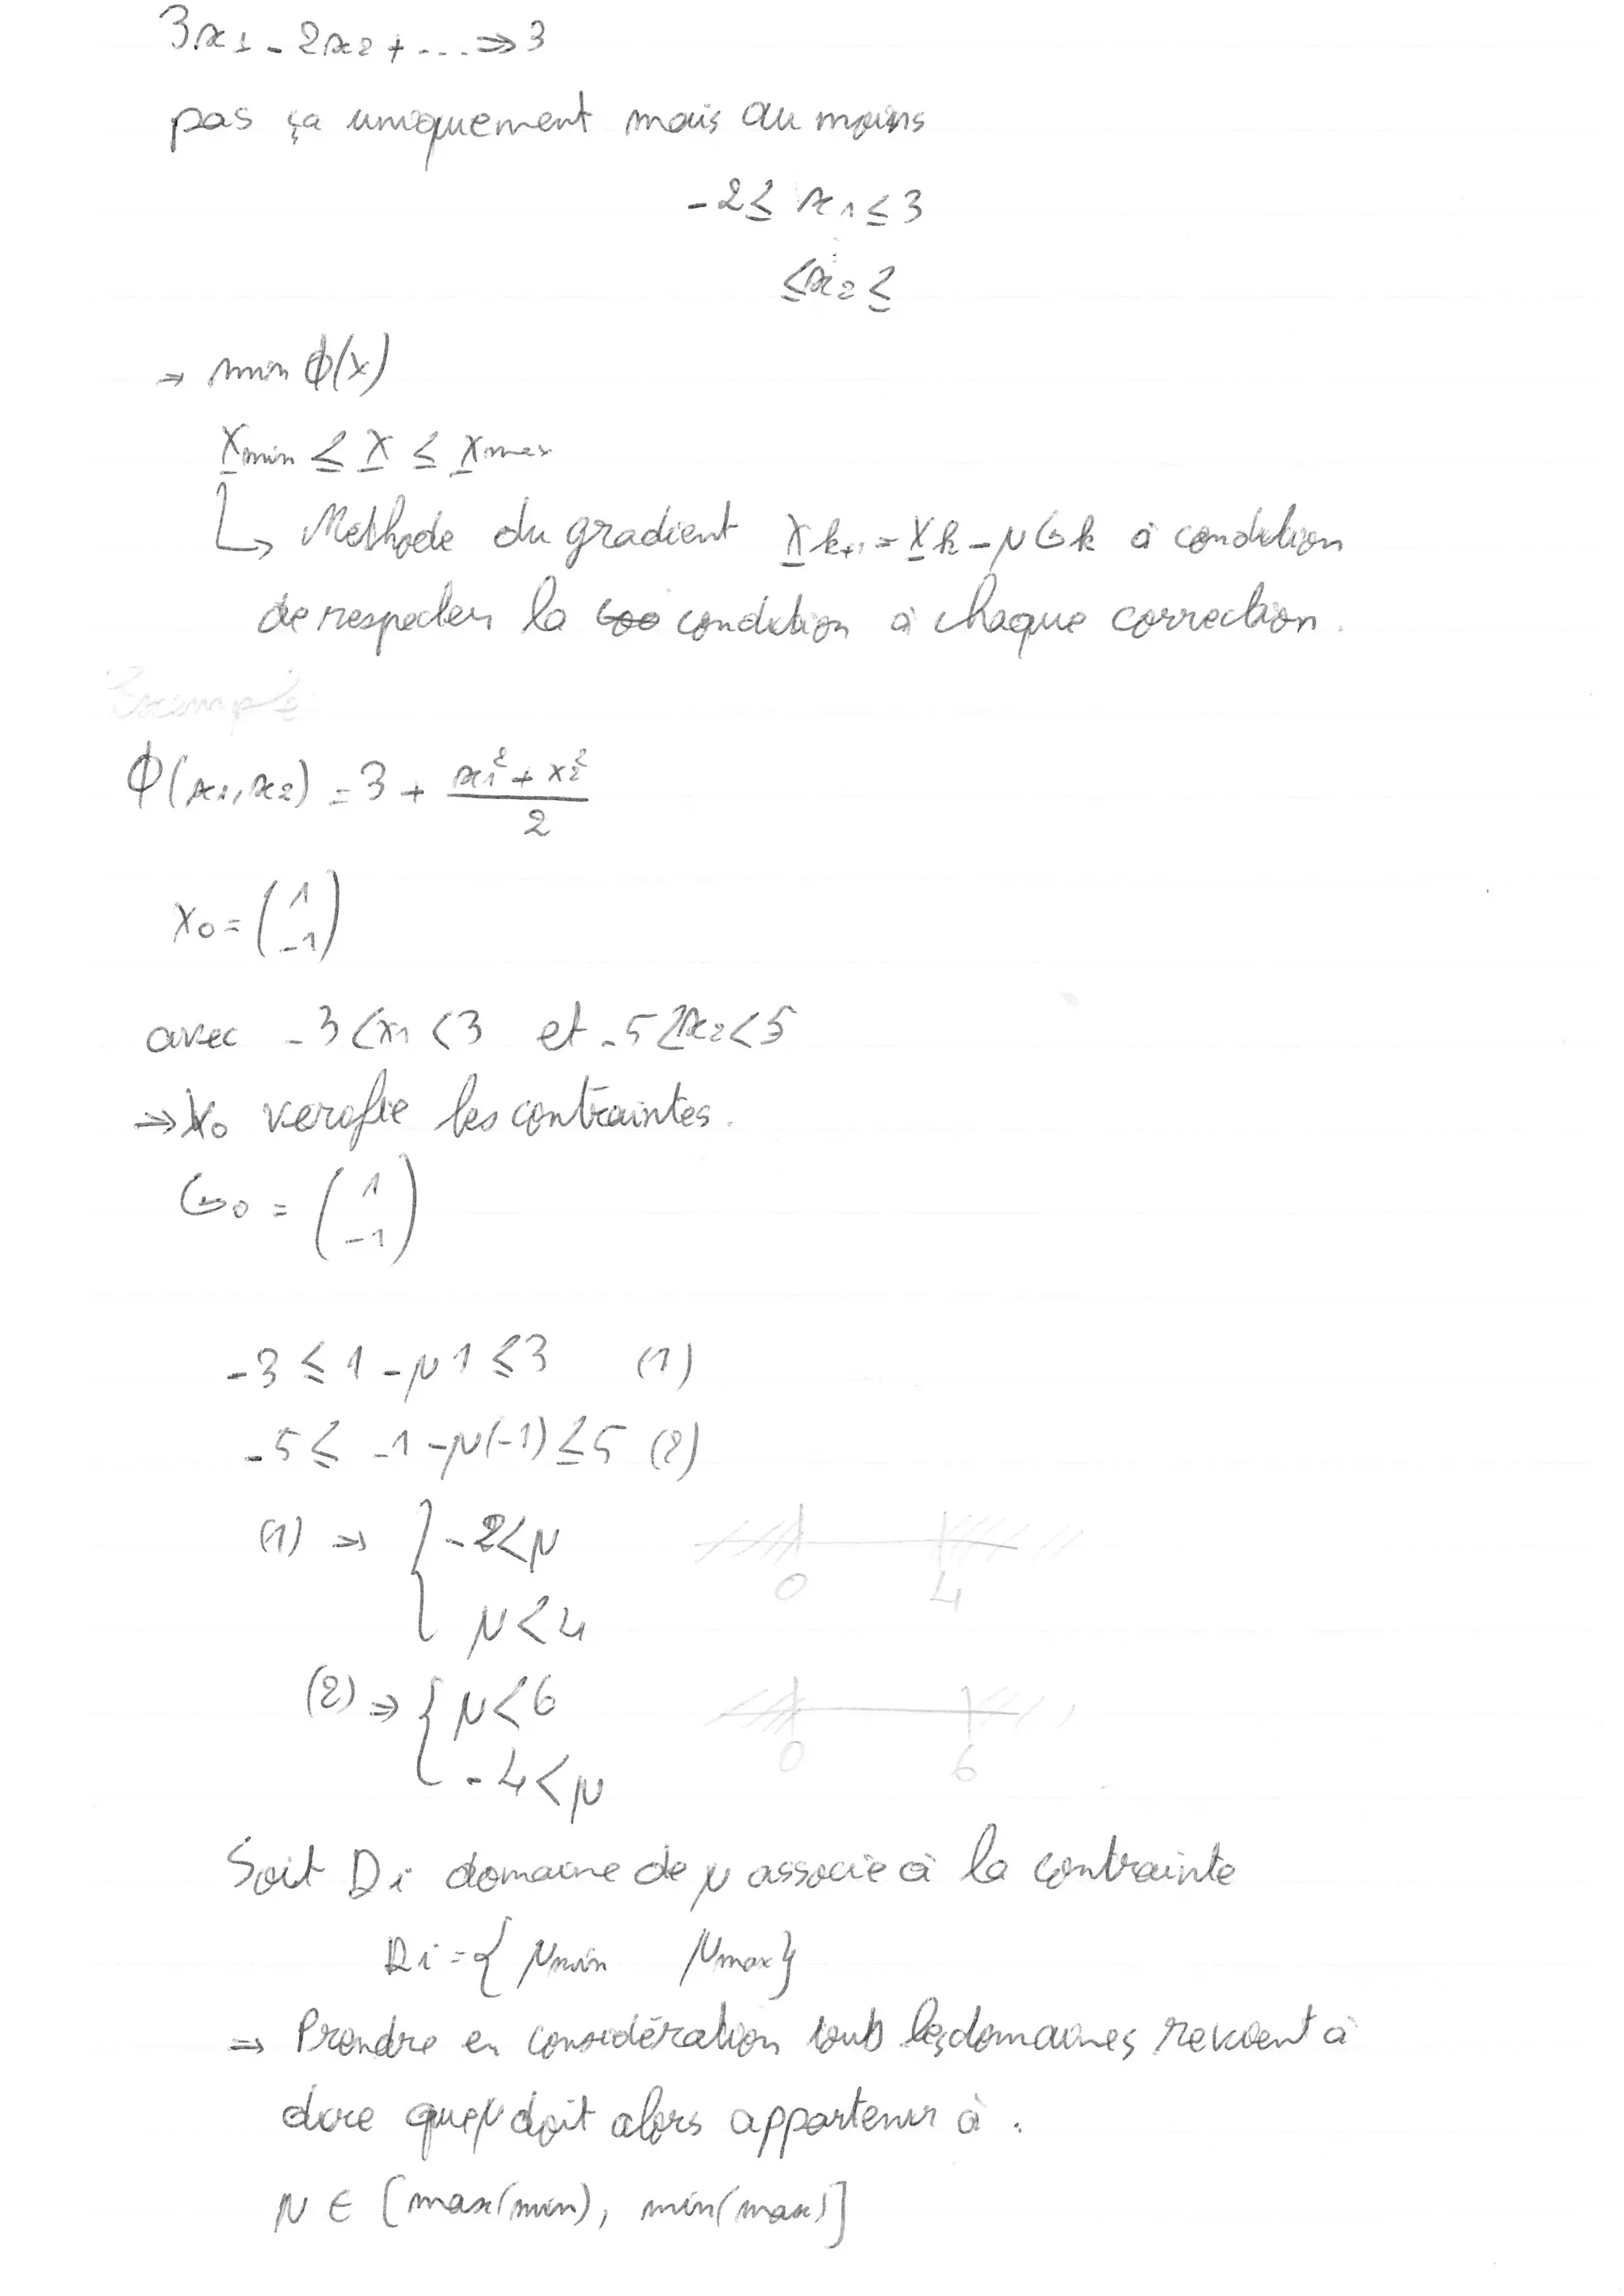 3x1 - 2x2 + ... => 3
pas ça uniquement mais au moins
-2 ≤ x1 ≤ 3
≤ x2 ≤
⇒ min ϕ(x)
Xmin ≤ X ≤ Xmax
↳ Methode du gradient Xk+1 = Xk - μGk à condition
de respecter la condition à chaque correction.
Exemple
ϕ(x1, x2) = 3 + (x1² + x2²)/2
X0 = (1 -1)
avec -3 < x1 < 3 et -5 < x2 < 5
⇒ X0 verifie les contraintes.
G0 = (1 -1)
-3 ≤ 1 - μ1 ≤ 3 (1)
-5 ≤ -1 - μ(-1) ≤ 5 (2)
(1) ⇒ { -2 < μ
μ < 4
0 4
(2) ⇒ { μ < 6
-4 < μ
0 6
Soit Di domaine de μ associe à la contrainte
Di = { μmin μmax }
⇒ Prendre en considération tout les domaines revient à
dire que μ doit alors appartenir à :
μ ∈ [max(min), min(max)]